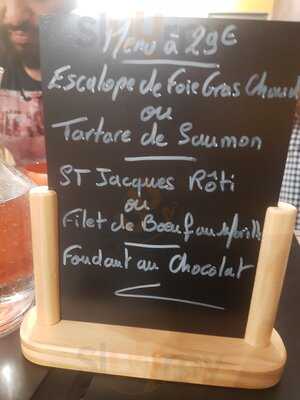 Menu à 29€
Escalope de Foie Gras Chaud
ou
Tartare de Saumon
ST Jacques Rôti
ou
Filet de Bœuf aux
Fondant au Chocolat